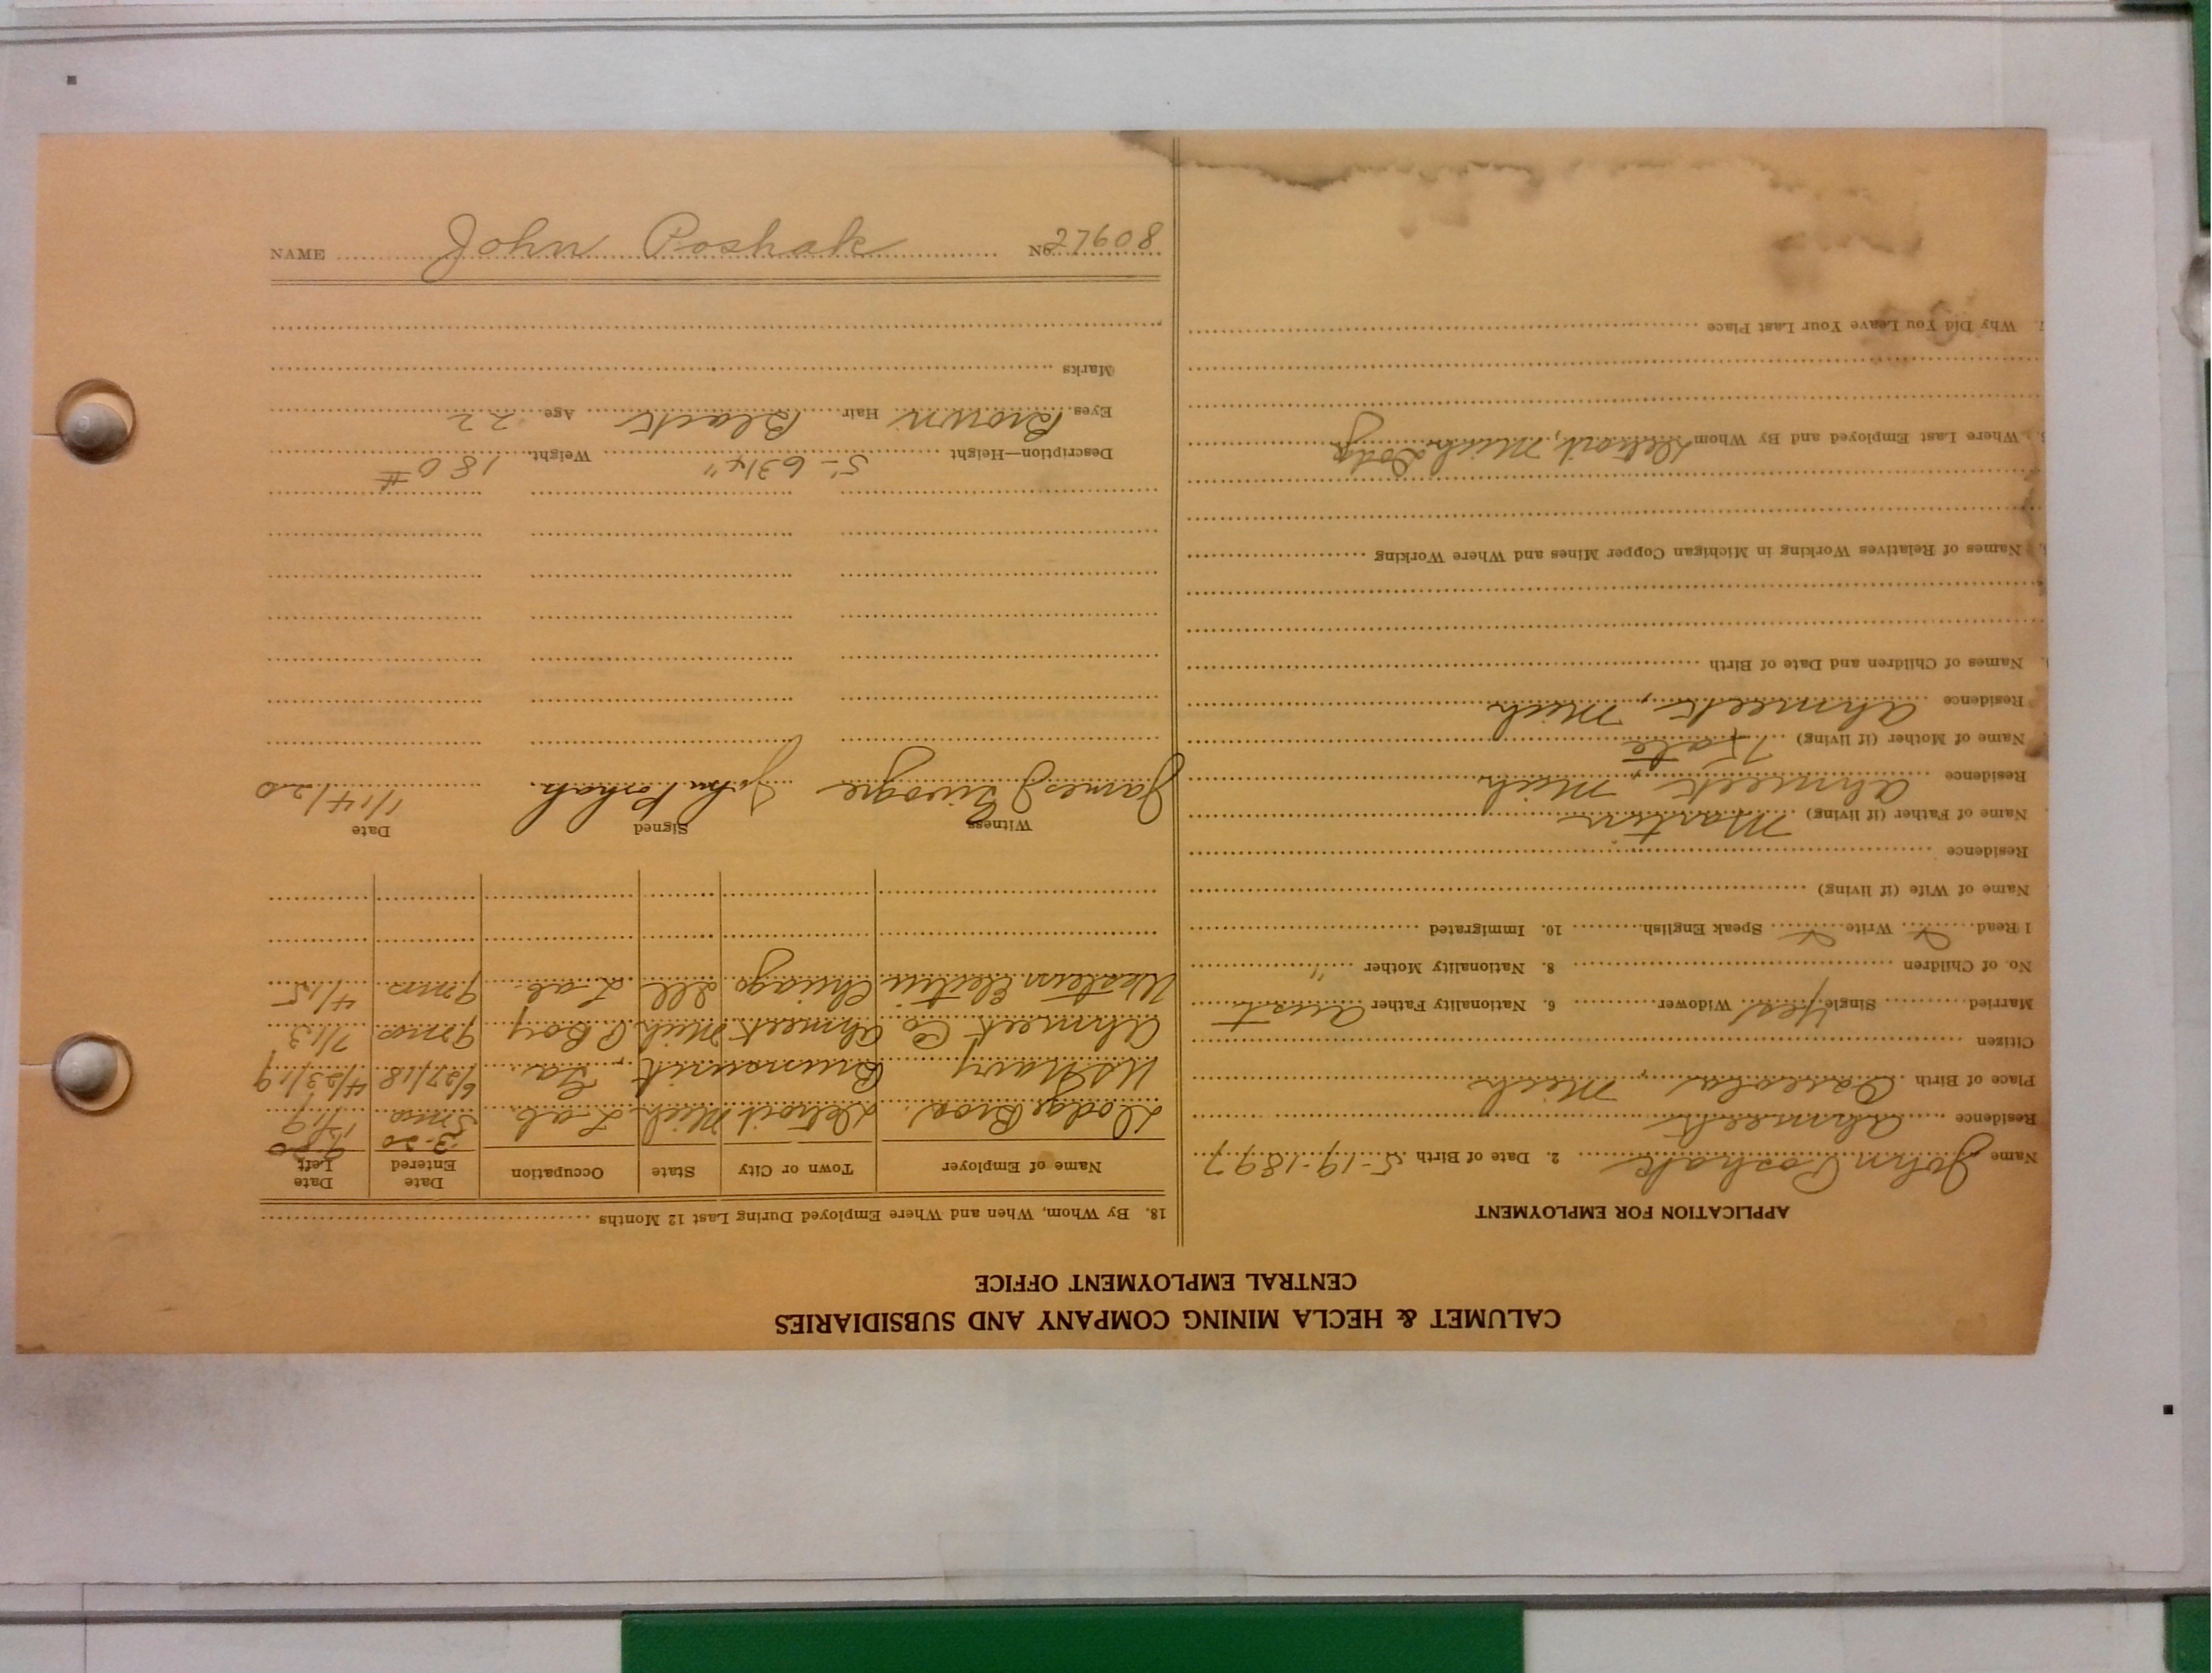 CALUMET & HECLA MINING COMPANY AND SUBSIDIARIES
CENTRAL EMPLOYMENT OFFICE
APPLICATION FOR EMPLOYMENT
Name John Poshak 2. Date of Birth 5-19-1897
Residence Ahmeek
Place of Birth Osceola, Mich
Citizen
Married Single Yes Widower 6. Nationality Father Aust
No. of Children 8. Nationality Mother "
1 Read Write Speak English 10. Immigrated
Name of Wife (if living)
Residence
Name of Father (if living) Martin
Residence Ahmeek, Mich
Name of Mother (if living) Kate
Residence Ahmeek, Mich
Names of Children and Date of Birth
Names of Relatives Working in Michigan Copper Mines and Where Working
Where Last Employed and By Whom Detroit, Mich Dodge
Why Did You Leave Your Last Place
18. By Whom, When and Where Employed During Last 12 Months
Name of Employer Town or City State Occupation Date Entered Date Left
3-20
Dodge Bros. Detroit Mich Lab 5 mos
U.S. Navy Ga. 6/27/18 4/23/19
Ahmeek Co Ahmeek Mich Boy 9 mos 7/13
Western Electric Chicago Ill Lab 9 mos 4/15
Witness Signed Date
James J John Poshak 1/14/20
Description—Height 5-6 3/4" Weight 180 #
Eyes Brown Hair Black Age 22
Marks
NAME John Poshak No. 27608